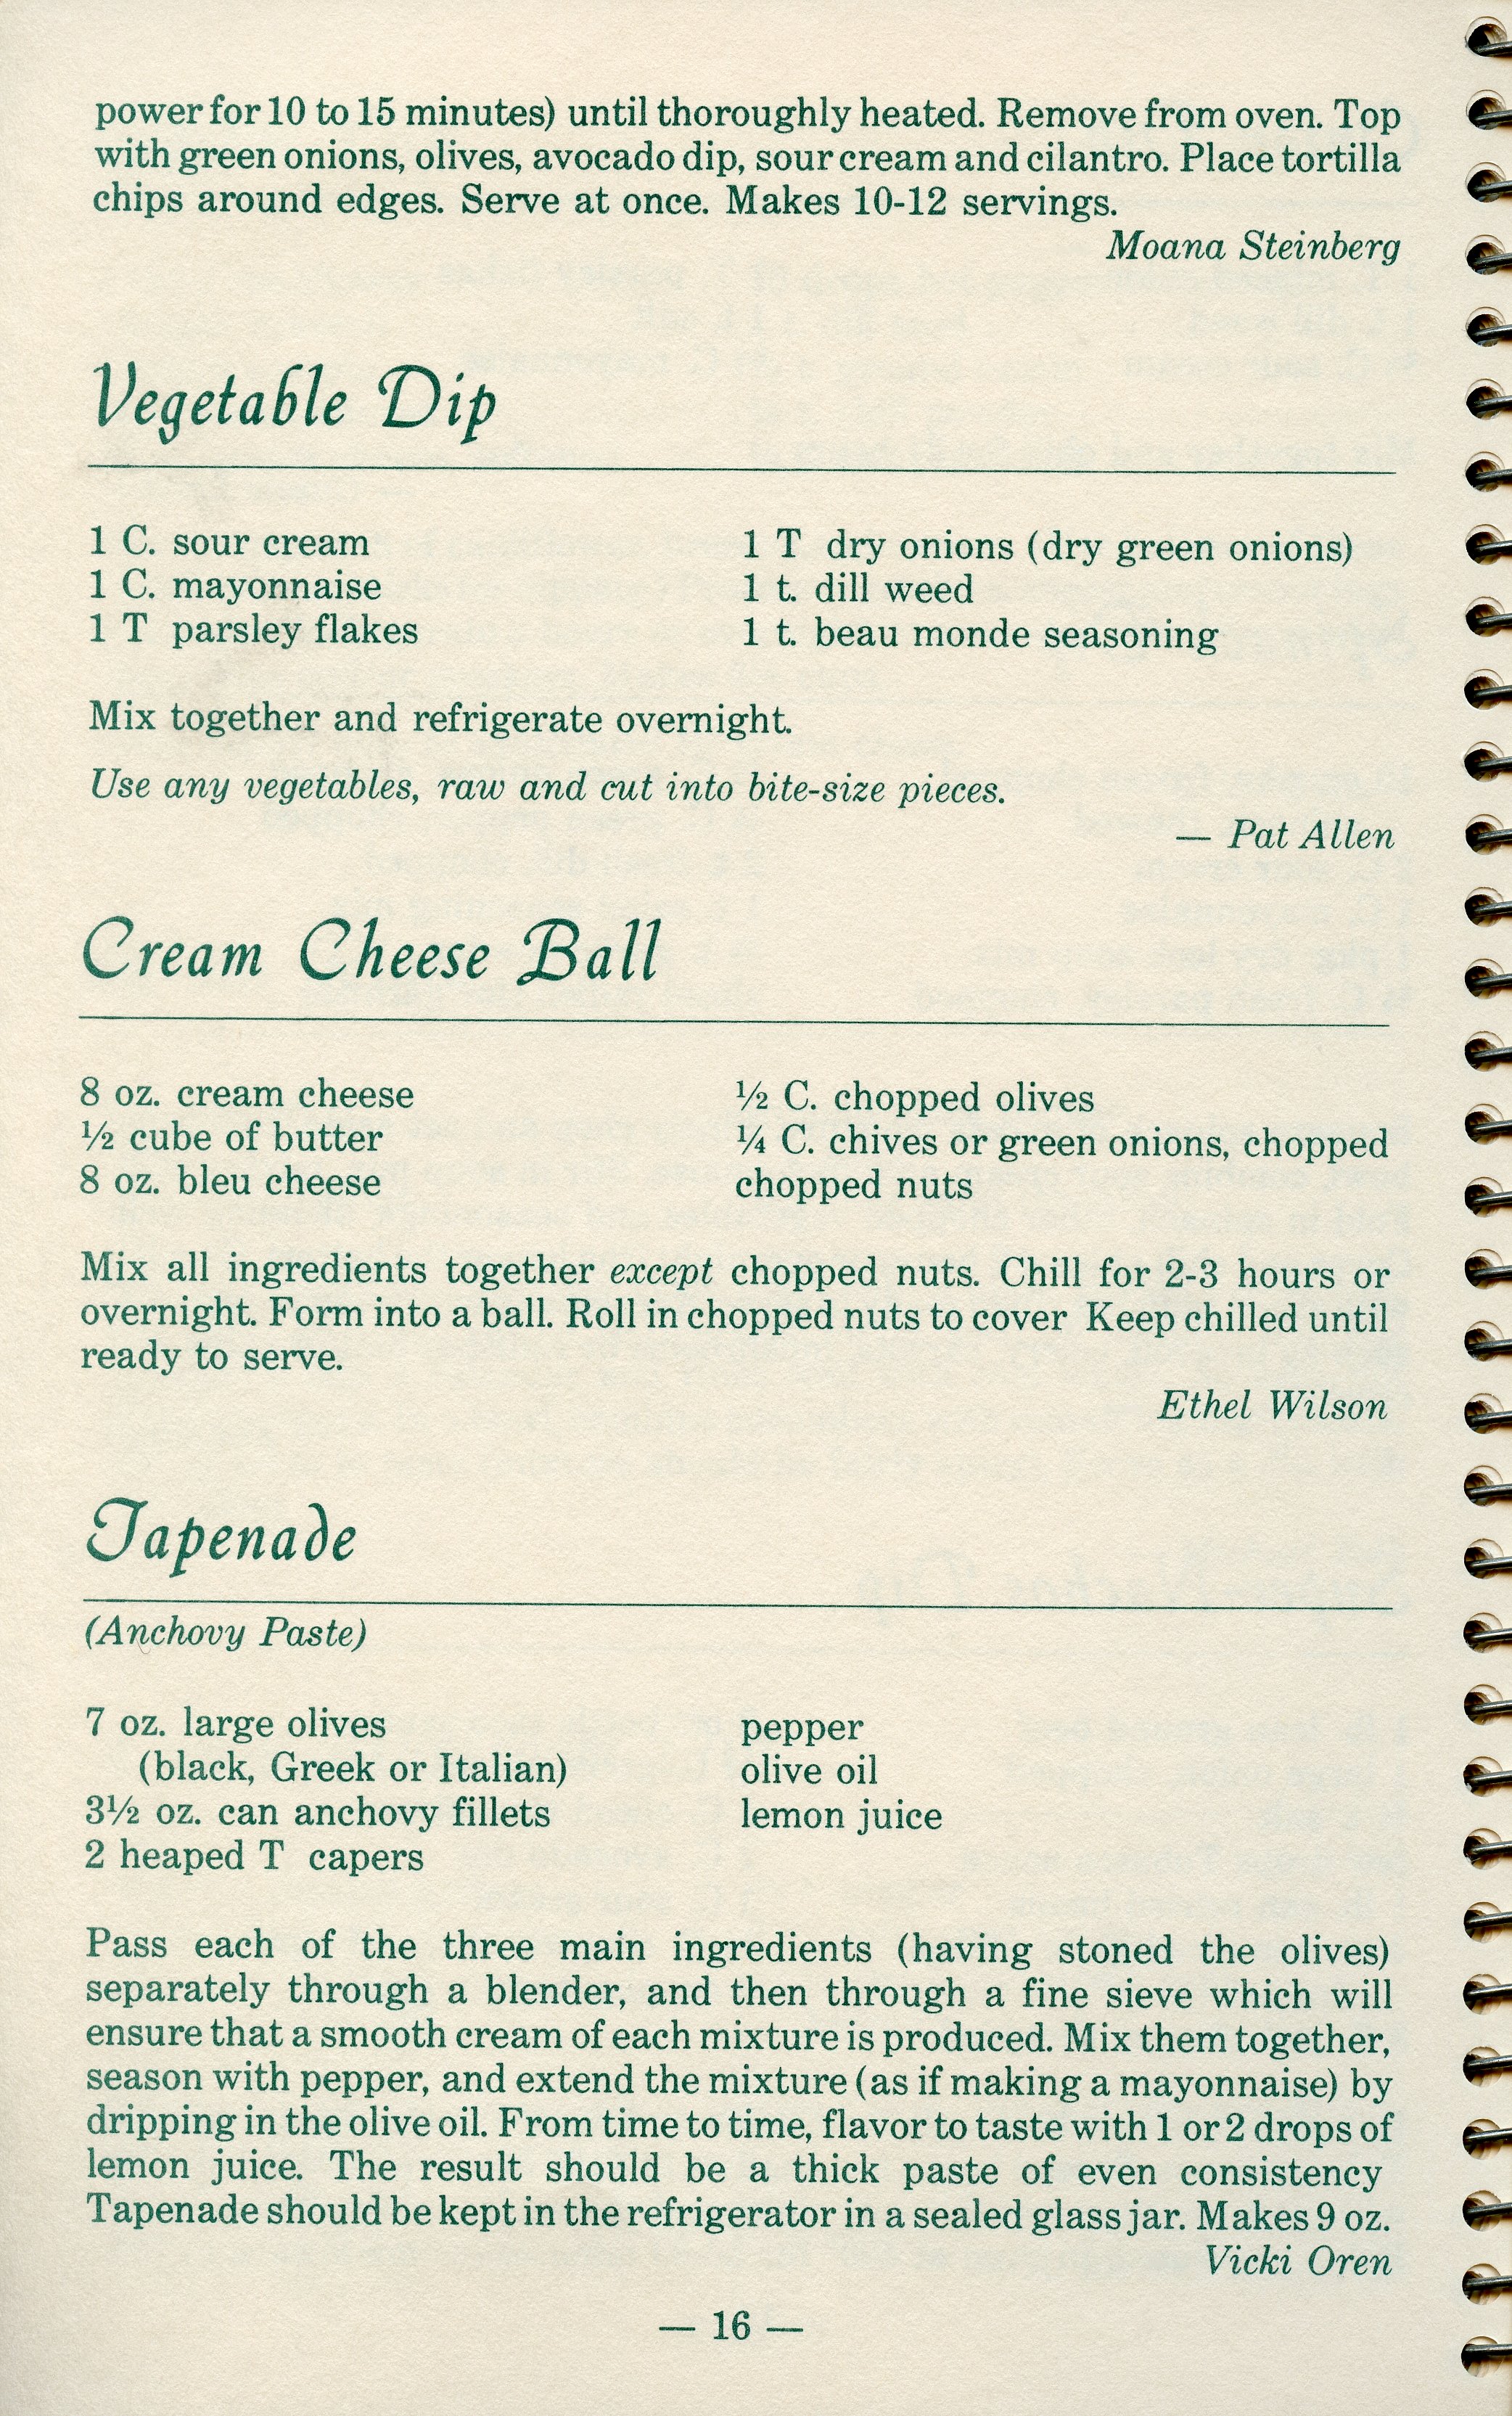 power for 10 to 15 minutes) until thoroughly heated. Remove from oven. Top
with green onions, olives, avocado dip, sour cream and cilantro. Place tortilla
chips around edges. Serve at once. Makes 10-12 servings.
Moana Steinberg
Vegetable Dip
1 C. sour cream
1 C. mayonnaise
1 T parsley flakes
1 T dry onions (dry green onions)
1 t. dill weed
1 t. beau monde seasoning
Mix together and refrigerate overnight.
Use any vegetables, raw and cut into bite-size pieces.
— Pat Allen
Cream Cheese Ball
8 oz. cream cheese
½ cube of butter
8 oz. bleu cheese
½ C. chopped olives
¼ C. chives or green onions, chopped
chopped nuts
Mix all ingredients together except chopped nuts. Chill for 2-3 hours or
overnight. Form into a ball. Roll in chopped nuts to cover Keep chilled until
ready to serve.
Ethel Wilson
Tapenade
(Anchovy Paste)
7 oz. large olives
(black, Greek or Italian)
3½ oz. can anchovy fillets
2 heaped T capers
pepper
olive oil
lemon juice
Pass each of the three main ingredients (having stoned the olives)
separately through a blender, and then through a fine sieve which will
ensure that a smooth cream of each mixture is produced. Mix them together,
season with pepper, and extend the mixture (as if making a mayonnaise) by
dripping in the olive oil. From time to time, flavor to taste with 1 or 2 drops of
lemon juice. The result should be a thick paste of even consistency
Tapenade should be kept in the refrigerator in a sealed glass jar. Makes 9 oz.
Vicki Oren
— 16 —